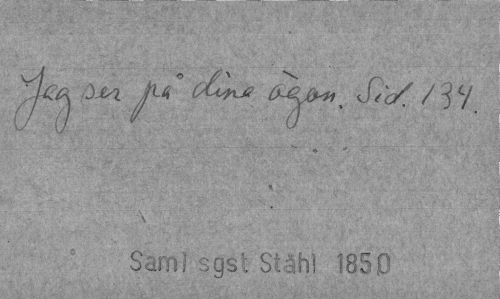 Jag ser på dina ögon. Sid. 134.
Saml sgst Ståhl 1850